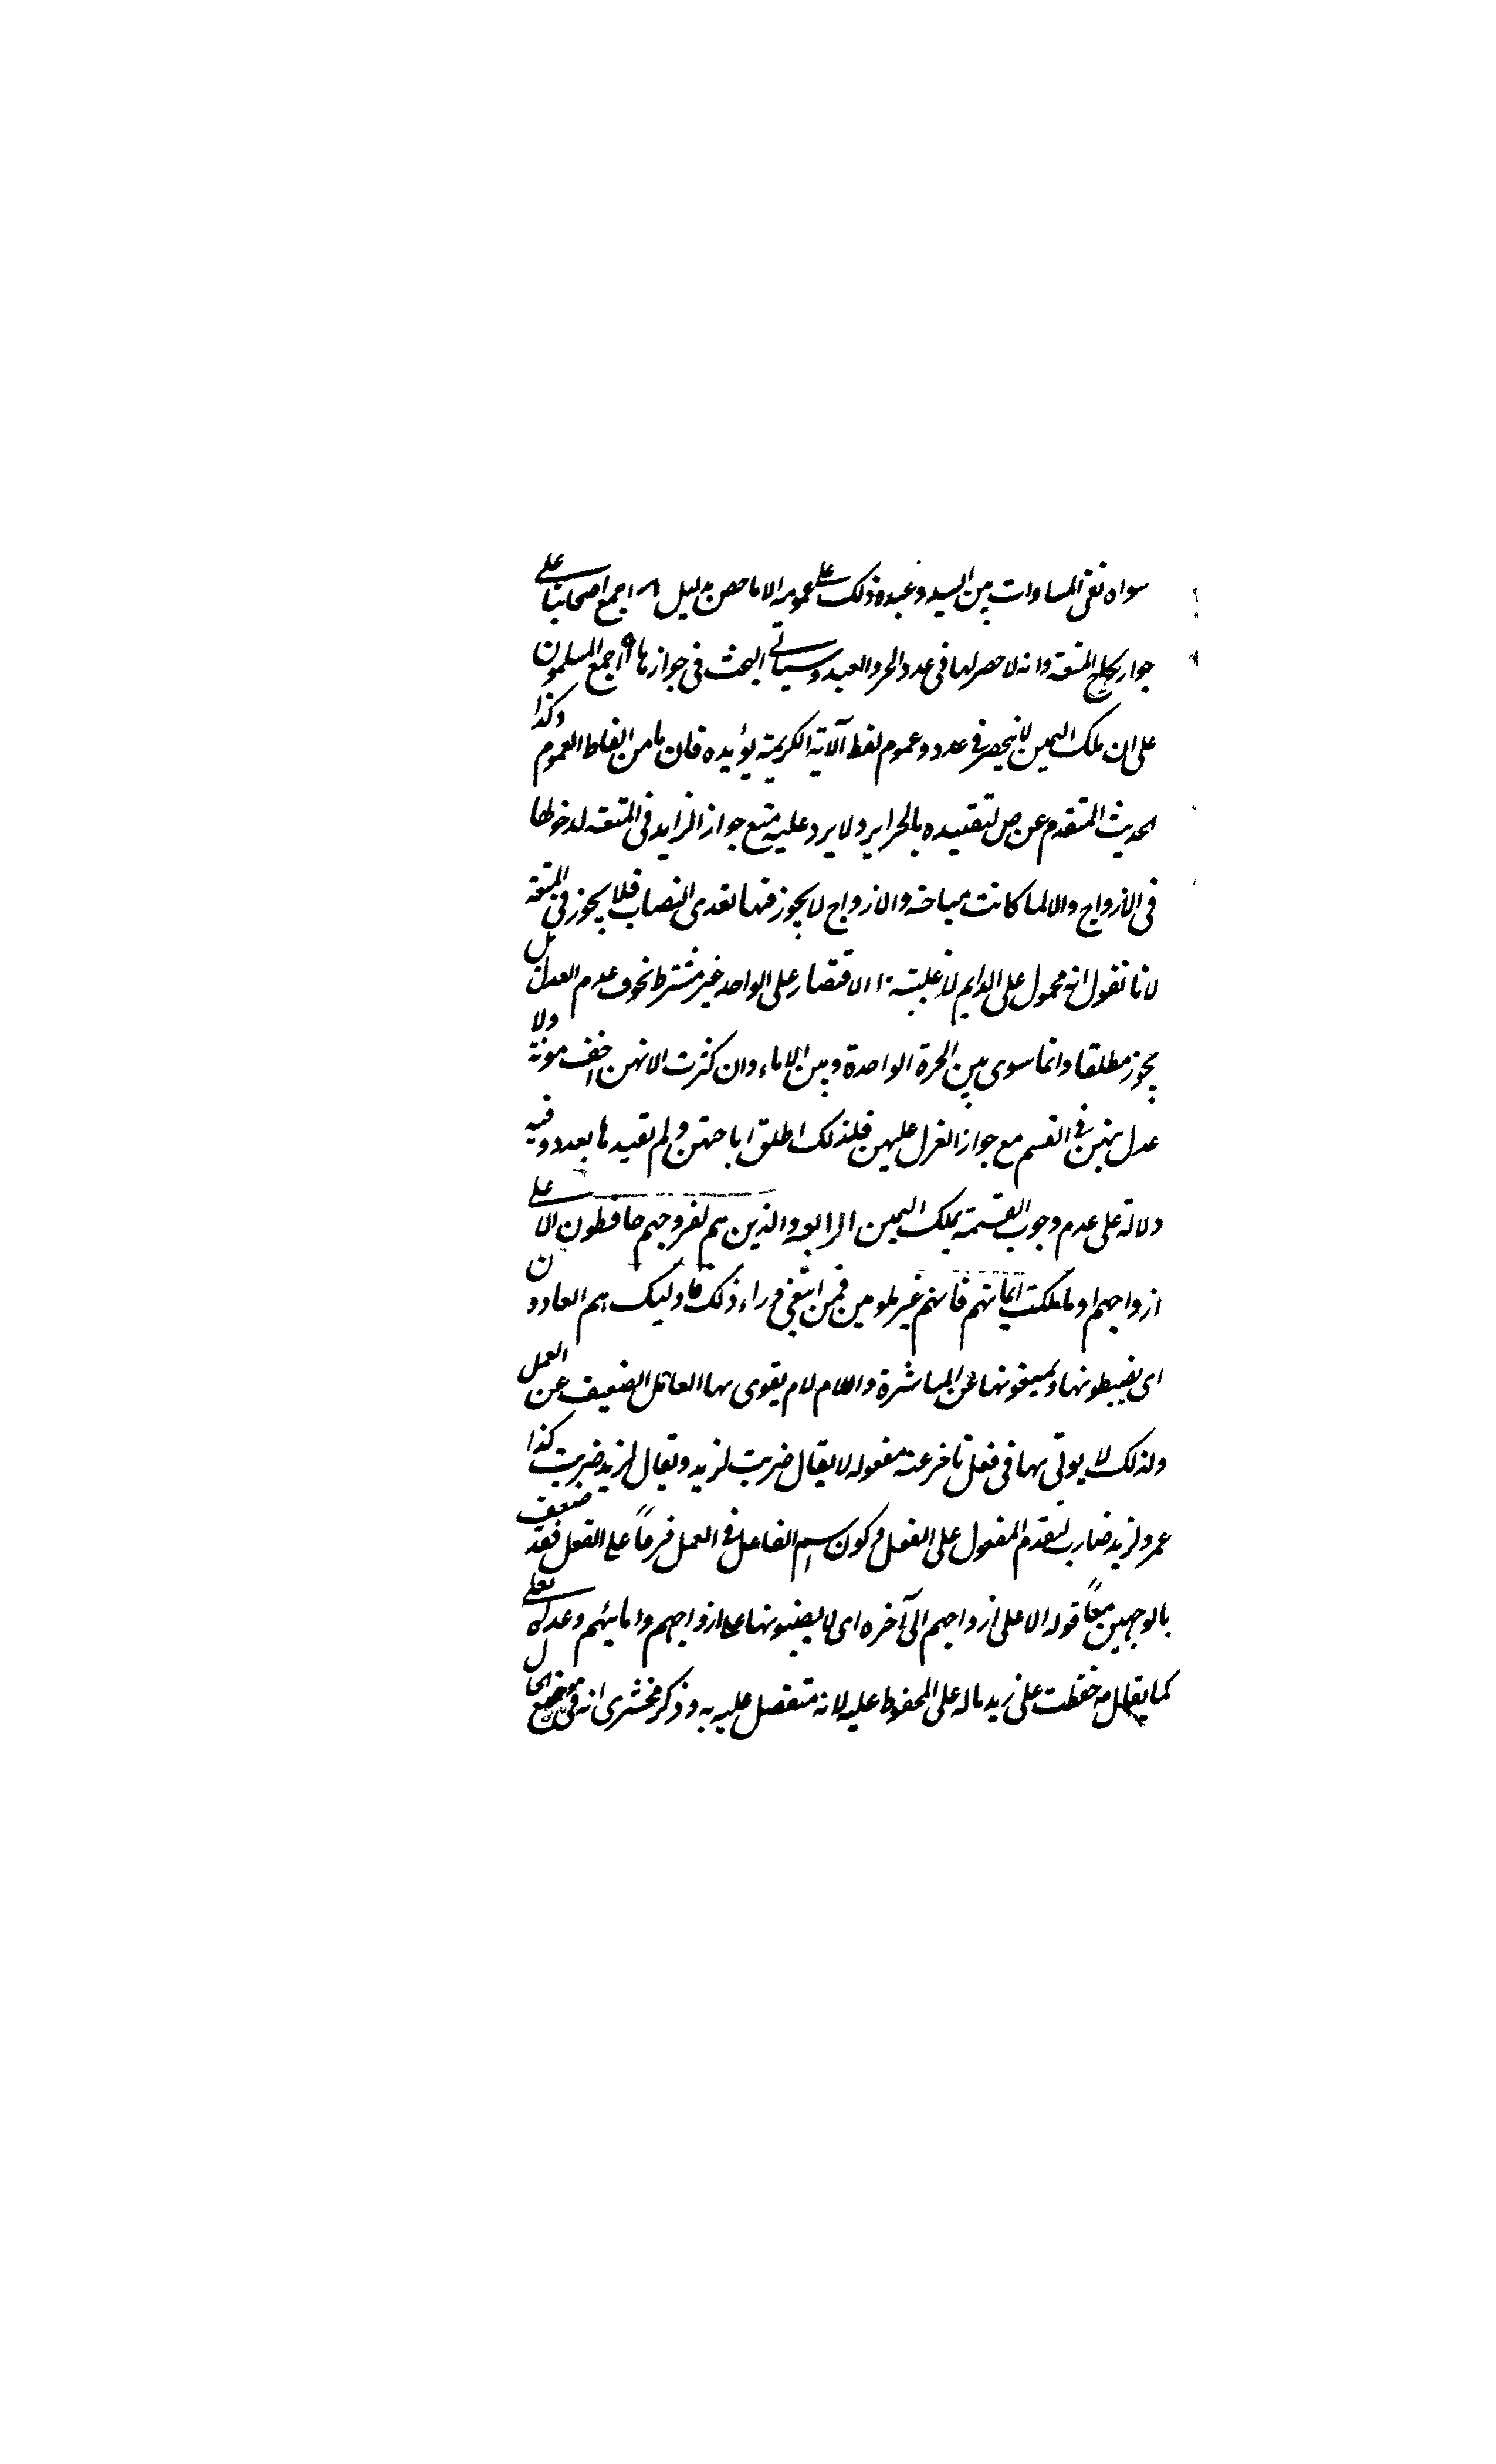 سواه نفى المساوات بين السيد وعبده وذلك على عمومه الا ما خص بدليل ٨ اجمع اصحابنا على
جواز نكاح المتعة وانه لا حصر لها فى عدد الحر والعبد وسياتى البحث فى جوازها ٩ اجمع المسلمون
على ان ملك اليمين لا ينحصر فى عدد وعموم لفظ الآية الكريمة يؤيده فان ما من الفاظ العموم وكذا
الحديث المتقدم عن ص لتقييده بالحراير ولا يرد عليه منع جواز الزايد فى المتعه لدخولها
فى الازواج والا لما كانت مباحة والازواج لا يجوز فيها تعدى النصاب فلا يجوز فى المتعة
لانا نقول انه محمول على الدايم لاغلبيته ١٠ الاقتصار على الواحد غير مشترط بخوف عدم العدل بل
يجوز مطلقا وانما سوى بين الحرة الواحدة وبين الاماء وان كثرت لانهن اخف مونة ولا
عدل بينهن فى القسم مع جواز العزل عليهن فلذلك اطلق اباحتهن ولم يقيدها بعدد وفيه
دلالة على عدم وجوب القسمة بملك اليمين الرابعه والذين هم لفروجهم حافظون الا على
ازواجهم او ما ملكت ايمانهم فانهم غير ملومين فمن ابتغى وراء ذلك فاوليك هم العادون
اى يضبطونها ويمنعونها عن المباشرة واللام لام يقوى بها العامل الضعيف عن العمل
ولذلك لا يوتى بها فى فعل تاخر عنه مفعوله لا يقال ضربت لزيد ويقال لزيد ضربت كذا
عمرو لزيد ضارب لتقدم المفعول على الفعل وكون اسم الفاعل فى العمل فرعاً على الفعل فقد ضعف
بالوجهين معاً قوله الا على ازواجهم الى آخره اى لا يضبطونها على ازواجهم وامائهم وعداه بعلى
كما يقال حفظت على زيد ماله على المحفوظ عليه لانه متفضل عليه به وذكر مخشرى انه فى موضع الحال